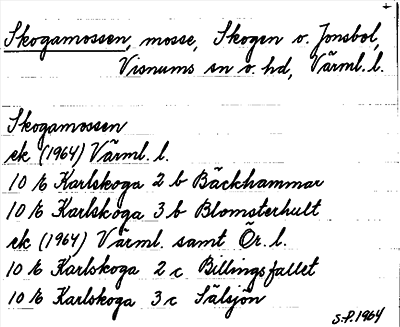 Skogamossen, mosse, Skogen o. Jonsbol,
Visnums sn o. hd, Värml. l.
Skogamossen
ek (1964) Värml. l.
10 E Karlskoga 2 b Bäckhammar
10 E Karlskoga 3 b Blomsterhult
ek (1964) Värml. samt Ör. l.
10 E Karlskoga 2 c Billingsfallet
10 E Karlskoga 3 c Sälsjön
S.P. 1964